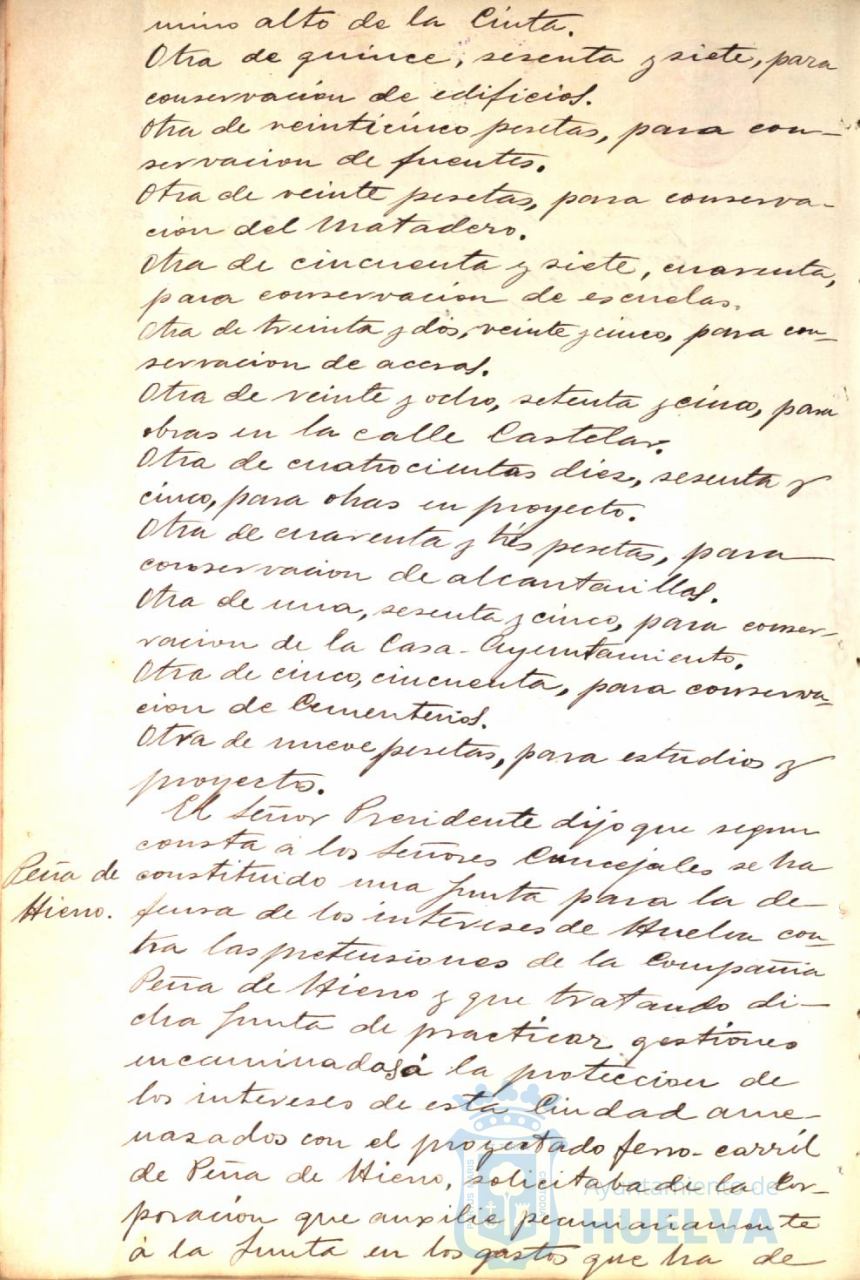 mino alto de la Cinta.
Otra de quince, sesenta y siete, para
conservación de edificios.
Otra de veinticinco pesetas, para con-
servacion de fuentes.
Otra de veinte pesetas, para conserva-
cion del Matadero.
Otra de cincuenta y siete, cuarenta,
para conservacion de escuelas.
Otra de treinta y dos, veinte y cinco, para con-
servacion de aceras.
Otra de veinte y ocho, setenta y cinco, para
obras en la calle Castelar.
Otra de cuatrocientas diez, sesenta y
cinco, para obras en proyecto.
Otra de cuarenta y tres pesetas, para
conservacion de alcantarillas.
Otra de una, sesenta y cinco, para conser-
vacion de la Casa-Ayuntamiento.
Otra de cinco, cincuenta, para conserva-
cion de Cementerios.
Otra de nueve pesetas, para estudios y
proyectos.
El Señor Presidente dijo que segun
consta á los Señores Concejales se ha
Peña de Hierro.
constituido una Junta para la de-
fensa de los intereses de Huelva con-
tra las pretensiones de la Compañia
Peña de Hierro y que tratando di-
cha Junta de practicar gestiones
encaminadas á la proteccion de
los intereses de esta Ciudad ame-
nazados con el proyectado ferro-carril
de Peña de Hierro, solicitaba de la Cor-
poración que auxilie pecuniariamente
á la Junta en los gastos que ha de
Ayuntamiento de
HUELVA